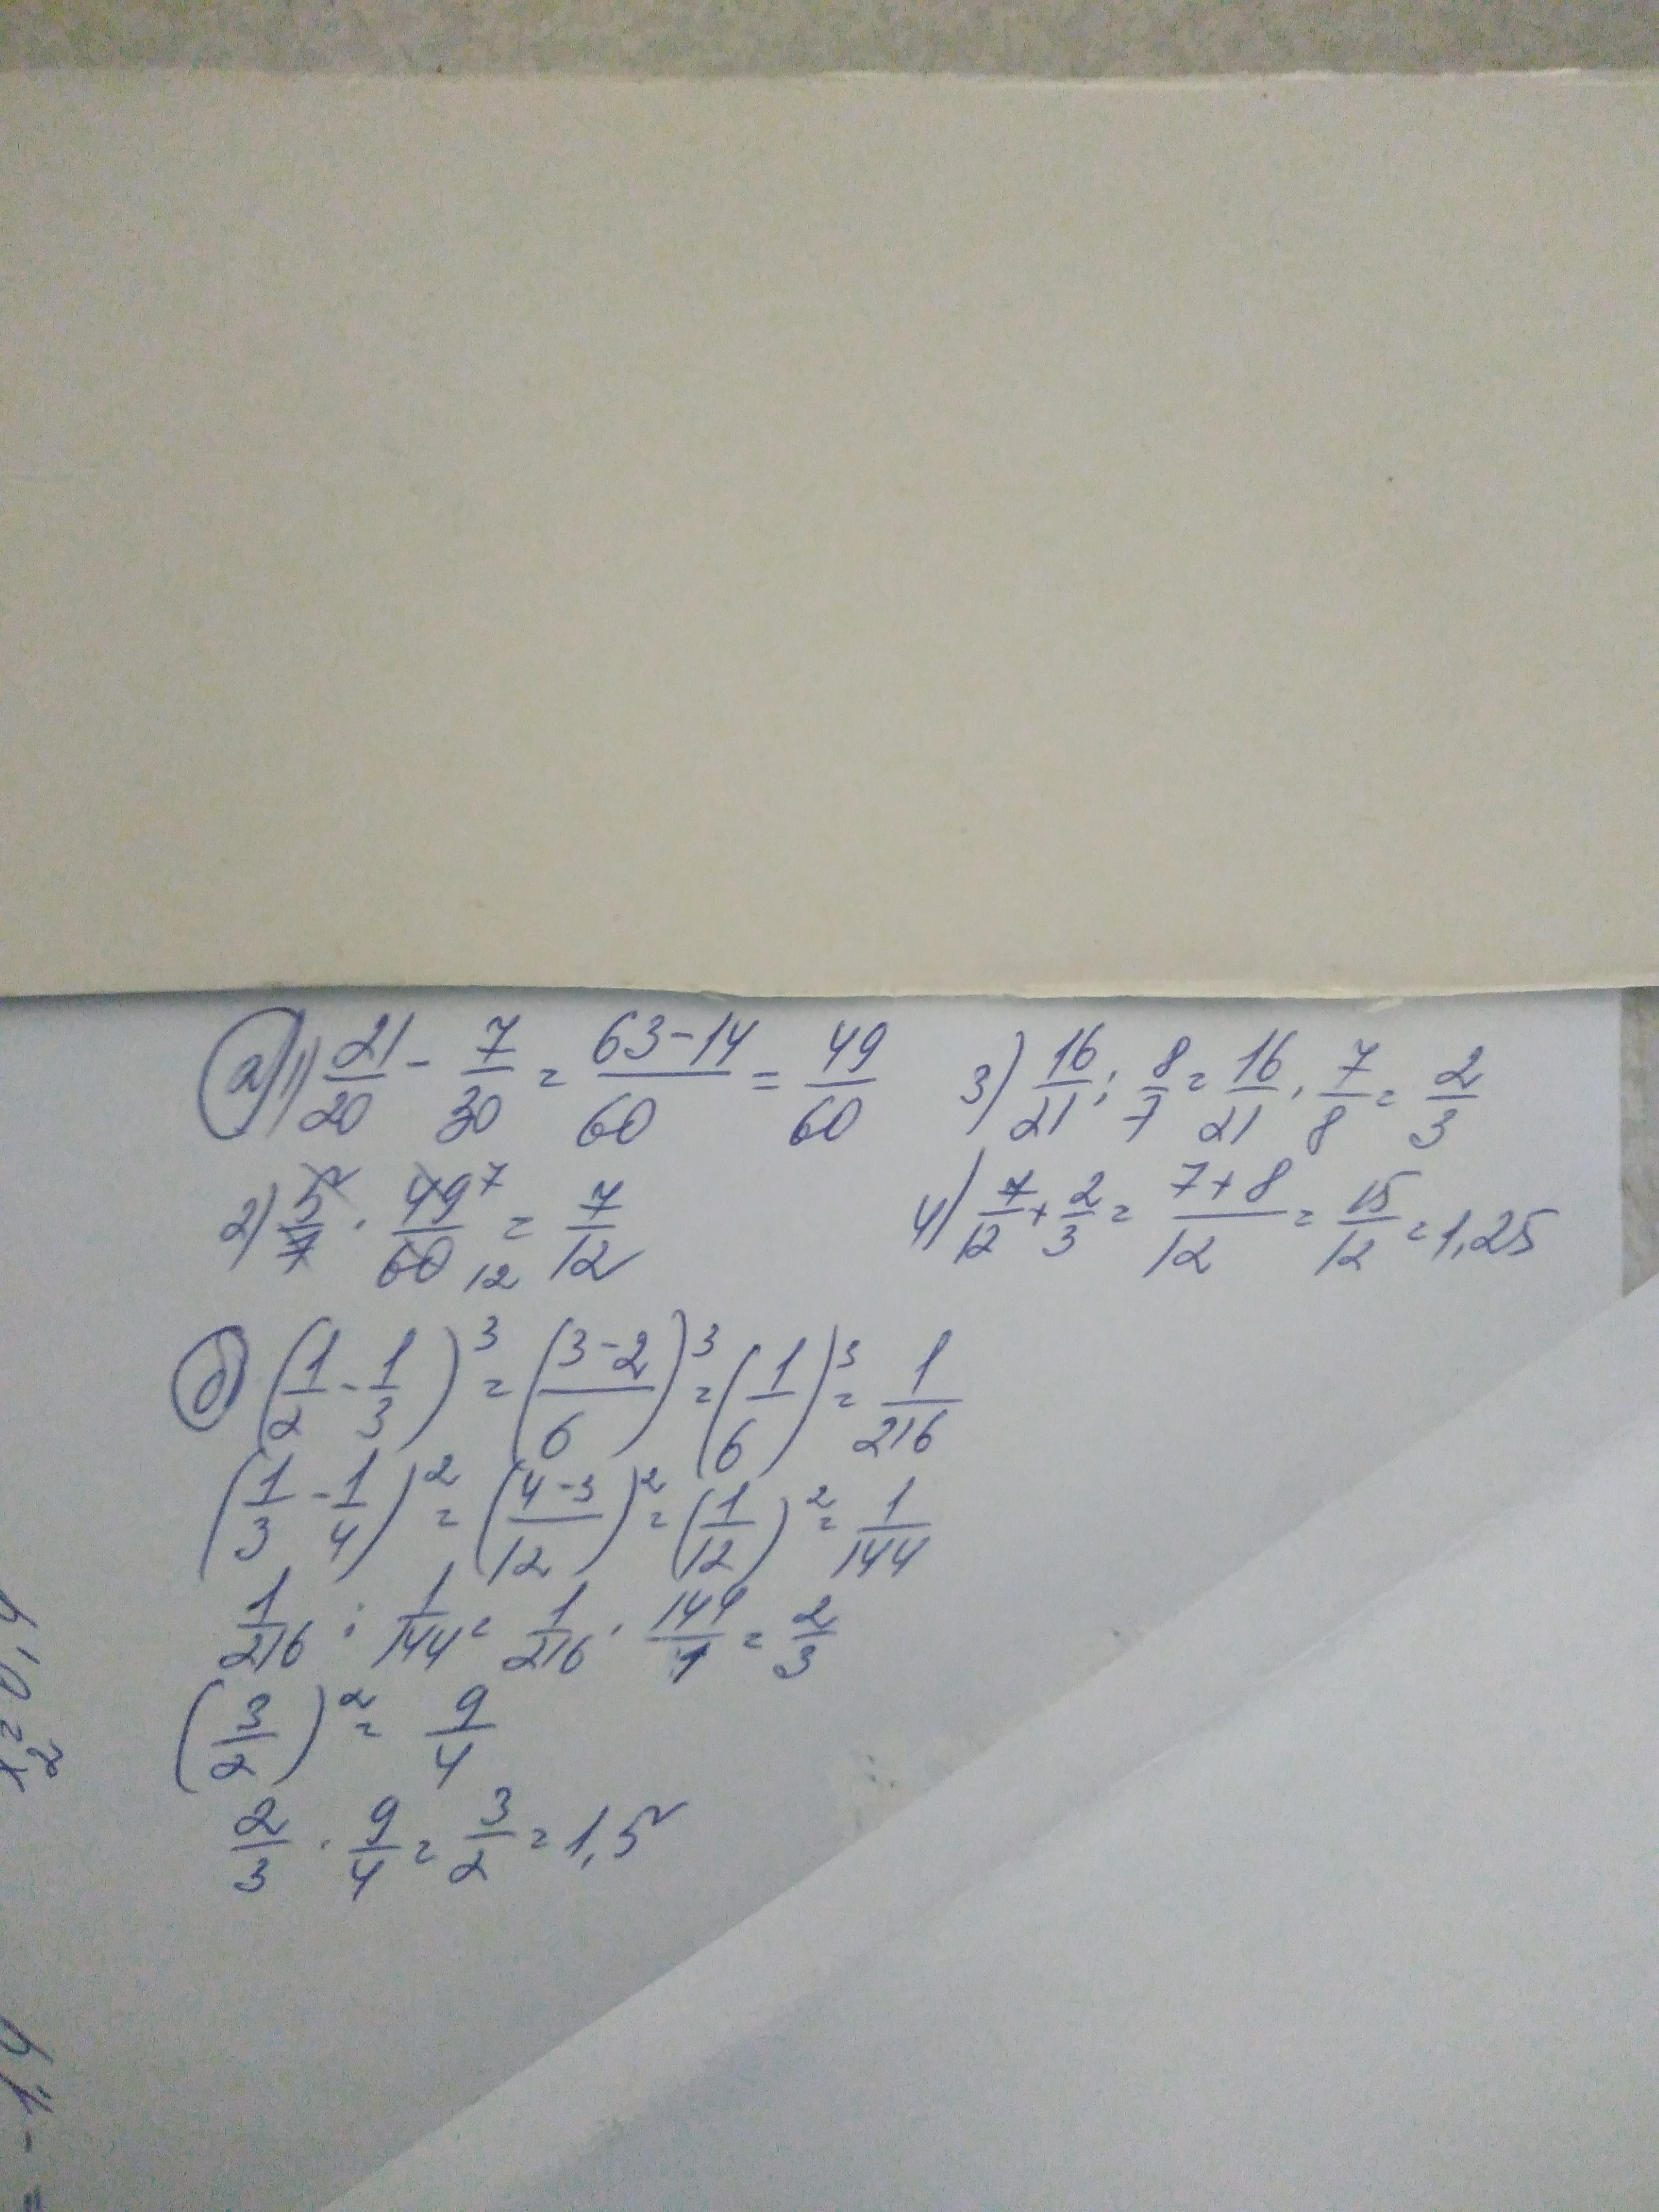 а) 1) 21/20 - 7/30 = (63-14)/60 = 49/60
2) 5/7 · 49/60 = 7/12
7
12
3) 16/21 : 8/7 = 16/21 · 7/8 = 2/3
4) 7/12 + 2/3 = (7+8)/12 = 15/12 = 1,25
б) (1/2 - 1/3)³ = ((3-2)/6)³ = (1/6)³ = 1/216
(1/3 - 1/4)² = ((4-3)/12)² = (1/12)² = 1/144
1/216 : 1/144 = 1/216 · 144/1 = 2/3
(3/2)² = 9/4
2/3 · 9/4 = 3/2 = 1,5
x₂ = 0,4
= -1,4